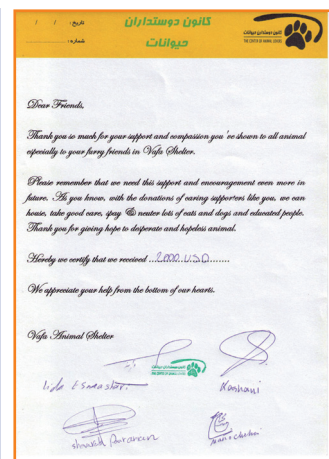 تاریخ: / /
شماره:
کانون دوستداران
حیوانات
کانون دوستداران حیوانات
THE CENTER OF ANIMAL LOVERS
Dear Friends,
Thank you so much for your support and compassion you 've shown to all animal
especially to your furry friends in Vafa Shelter.
Please remember that we need this support and encouragement even more in
future. As you know, with the donations of caring supporters like you, we can
house, take good care, spay & neuter lots of cats and dogs and educated people.
Thank you for giving hope to desperate and hopeless animal.
Hereby we certify that we received ...2000 USD........
We appreciate your help from the bottom of our hearts.
Vafa Animal Shelter
Kashani